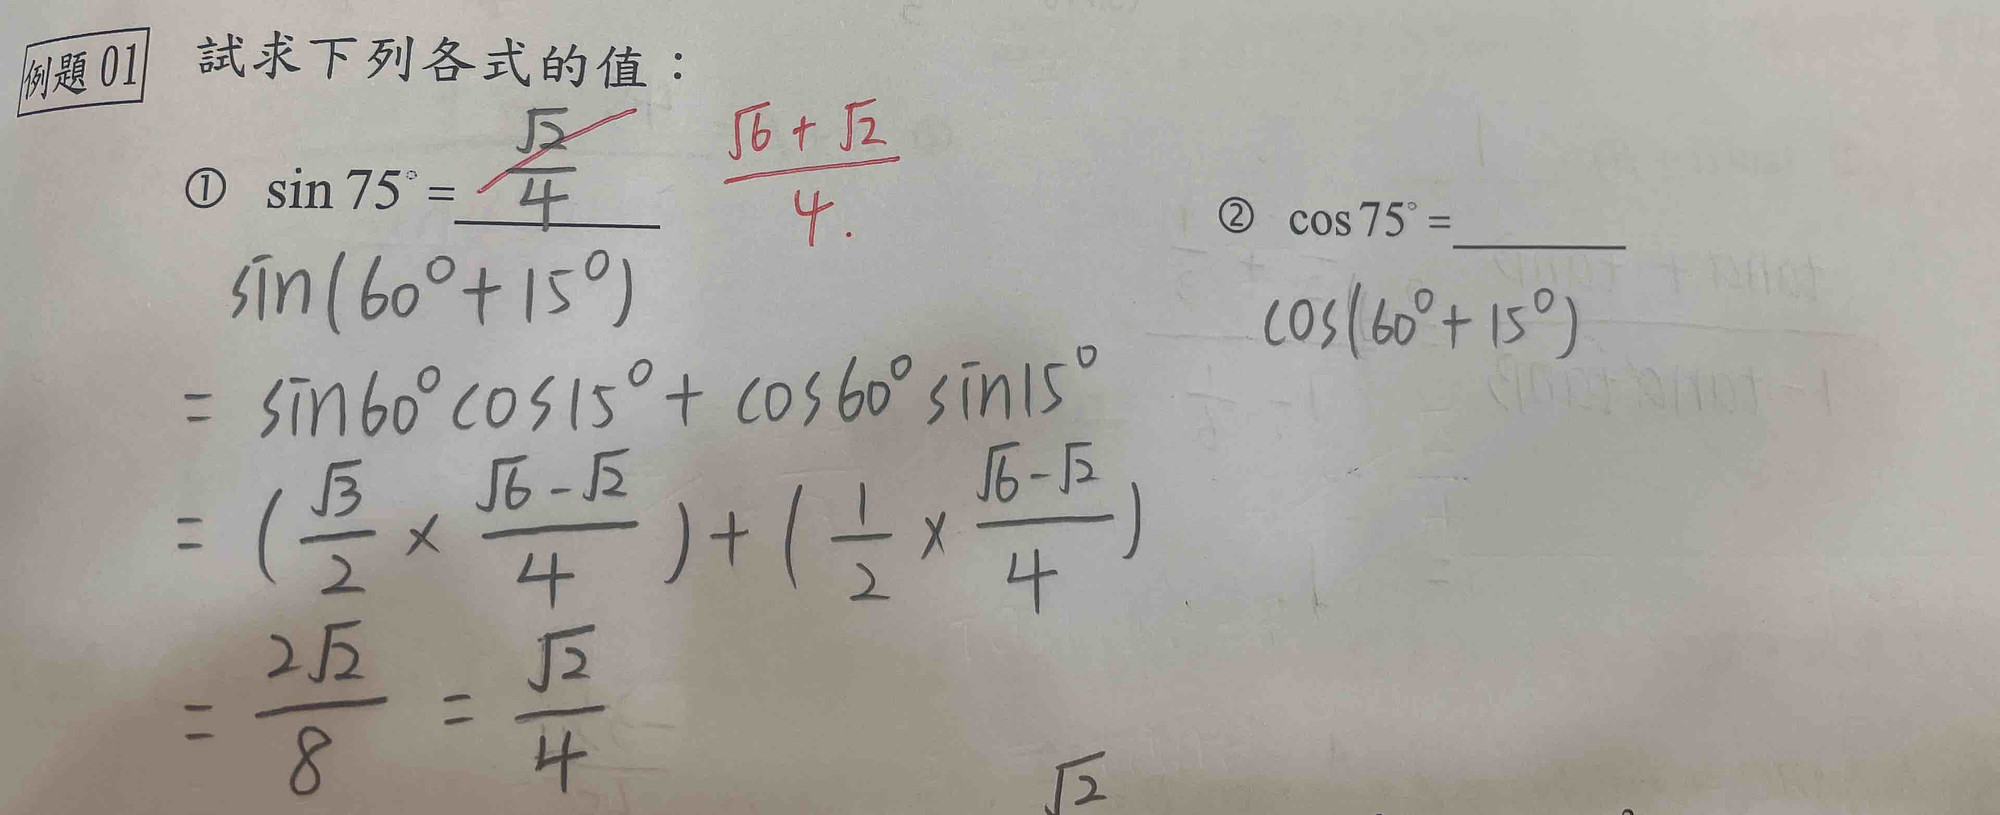 例題 01 試求下列各式的值：
① sin 75° = √2/4 (√6 + √2)/4.
sin(60° + 15°)
= sin60° cos15° + cos60° sin15°
= (√3/2 × (√6 - √2)/4) + (1/2 × (√6 - √2)/4)
= 2√2/8 = √2/4
② cos 75° =
cos(60° + 15°)
√2